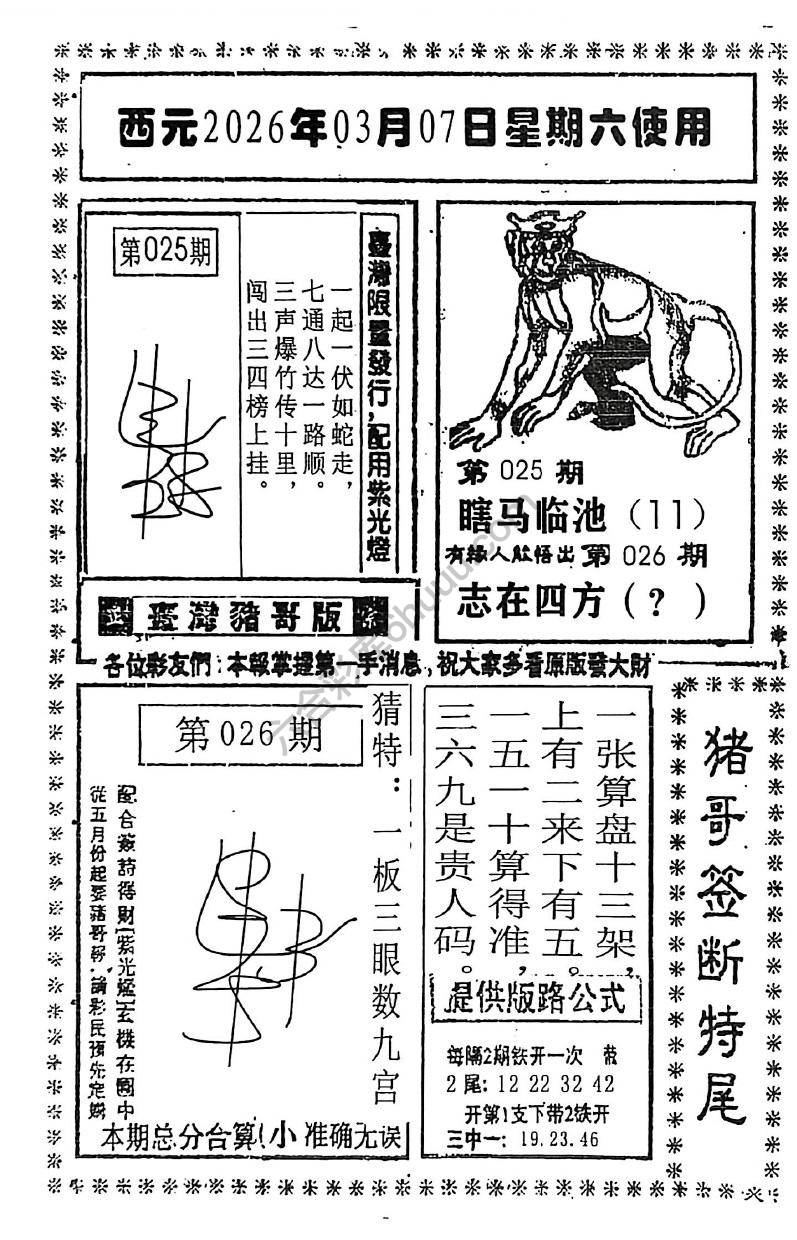 西元2026年03月07日星期六使用
第025期
一起一伏如蛇走，
七通八达一路顺。
三声爆竹传十里，
闯出三四榜上挂。
臺灣限量發行，配用紫光燈
臺灣豬哥版
第025期
瞎马临池（11）
有緣人能悟出第026期
志在四方（？）
各位彩友們：本報掌握第一手消息，祝大家多看原版發大財
第026期
猜特：一板三眼数九宫
配合簽詩得財[紫光燈]玄機在圖中
從五月份起要豬哥報．請彩民預先定購
本期总分合算！小 准确无误
一张算盘十三架，
上有二来下有五。
一五一十算得准，
三六九是贵人码。
提供版路公式
每隔2期铁开一次 带
2尾：12 22 32 42
开第1支下带2铁开
三中一：19.23.46
猪哥签断特尾